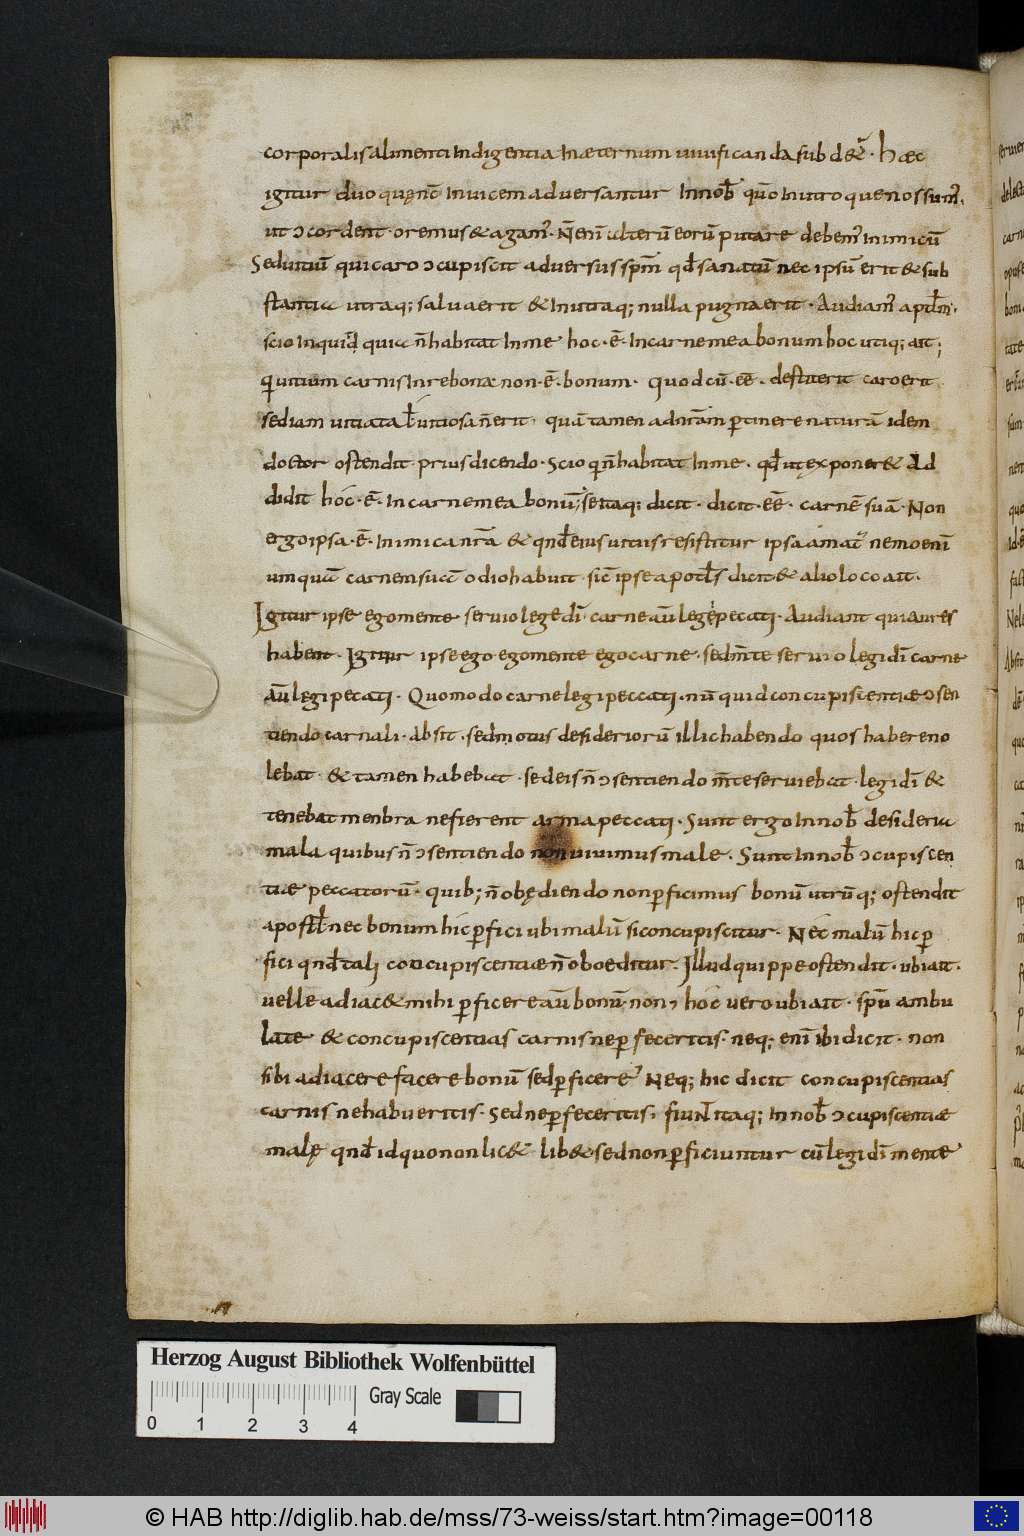 corporalis alimenti indigentia inæternum uiuificanda subd&r̃. Hæc
igitur duo quęnc̄ inuicem aduersantur Innob̄ qm̄o inutroquenossum᾽.
ut ɔcordent. oremus & agam᾽. N̄enī alterū eorū putare debem᾽ inimicū
Seduitiū qui caro ɔcupiscit aduersus spm̄ qd̄ sanatū nec ipsū erit & sub
stantia utraq; salua erit & Inutraq; nulla pugna erit. Audiam᾽ aptl̄m.
scio inquid̄ quia n̄ habitat Inme hoc. ē. Incarne mea bonum hoc utiq; ait;
q uitium carnis Inre bona non. ē. bonum. quod cū. eē. destiterit caro erit
sed iam uitiata l̄ uitiosa n̄ erit. quā tamen adnr̄am ꝑtinere naturā idem
doctor ostendit. prius dicendo. Scio q n̄ habitat Inme. qd̄ ut exponer& Ad
didit hoc. ē. Incarne mea bonū; se itaq; dicit. dicit. eē. carnē suā. Non
ergo ipsa. ē. Inimica nr̄a & qnd̄ eius uitiis resistitur ipsa amat᾽ nemo enī
umquā carnem suā odio habuit. sic̄ ipse apostl̄s dicit & alio loco ait.
Igitur ipse egomente seruio legedī. carne aū legepecati. Audiant qui aures
habent. Igitur ipse ego egomente ego carne. sed m̄te seruio legi dī carne
aū legi pecati. Quomodo carne legi peccati. nū quid concupiscentiæ ɔsen
tiendo carnali. Absit. sed motus desideriorū illic habendo quos habere no
lebat. & tamen habebat. sed eis n̄ ɔsentiendo m̄te seruiebat. legi dī &
tenebat menbra ne fierent arma peccati. Sunt ergo Innob̄ desideria
mala quibus n̄ ɔsentiendo non uiuimus male. Sunt Innob̄ ɔcupiscen
tiæ peccatorū. quib; n̄ obędiendo non ꝑficimus bonū utrūq; ostendit
apostl̄ nec bonum hic ꝑfici ubi malū sic concupiscitur. Nec malū hic ꝑ
fici qnd̄ tali concupiscentiæ n̄ oboeditur. Illud quippe ostendit. ubi ait.
uelle adiac& mihi ꝑficere aū bonū. non; hoc uero ubi ait. spū ambu
late & concupiscentias carnis ne ꝑfeceritis. neq; enī ibi dicit. non
sibi adiacere facere bonū sed ꝑficere Neq; hic dicit concupiscentias
carnis ne habueritis. Sed ne ꝑfeceritis. fiun̄t itaq; Innob̄ ɔcupiscentiæ
malę qnd̄ id quo non lic& lib& sed non ꝑficiuntur cū legi dī mente
Herzog August Bibliothek Wolfenbüttel
Gray Scale
0 1 2 3 4
© HAB http://diglib.hab.de/mss/73-weiss/start.htm?image=00118